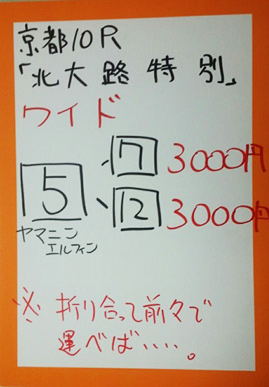 京都10R
「北大路特別」
ワイド
7 3000円
5
12 3000円
ヤマニン
エルフィン
※ 折り合って前々で
運べば、、、。